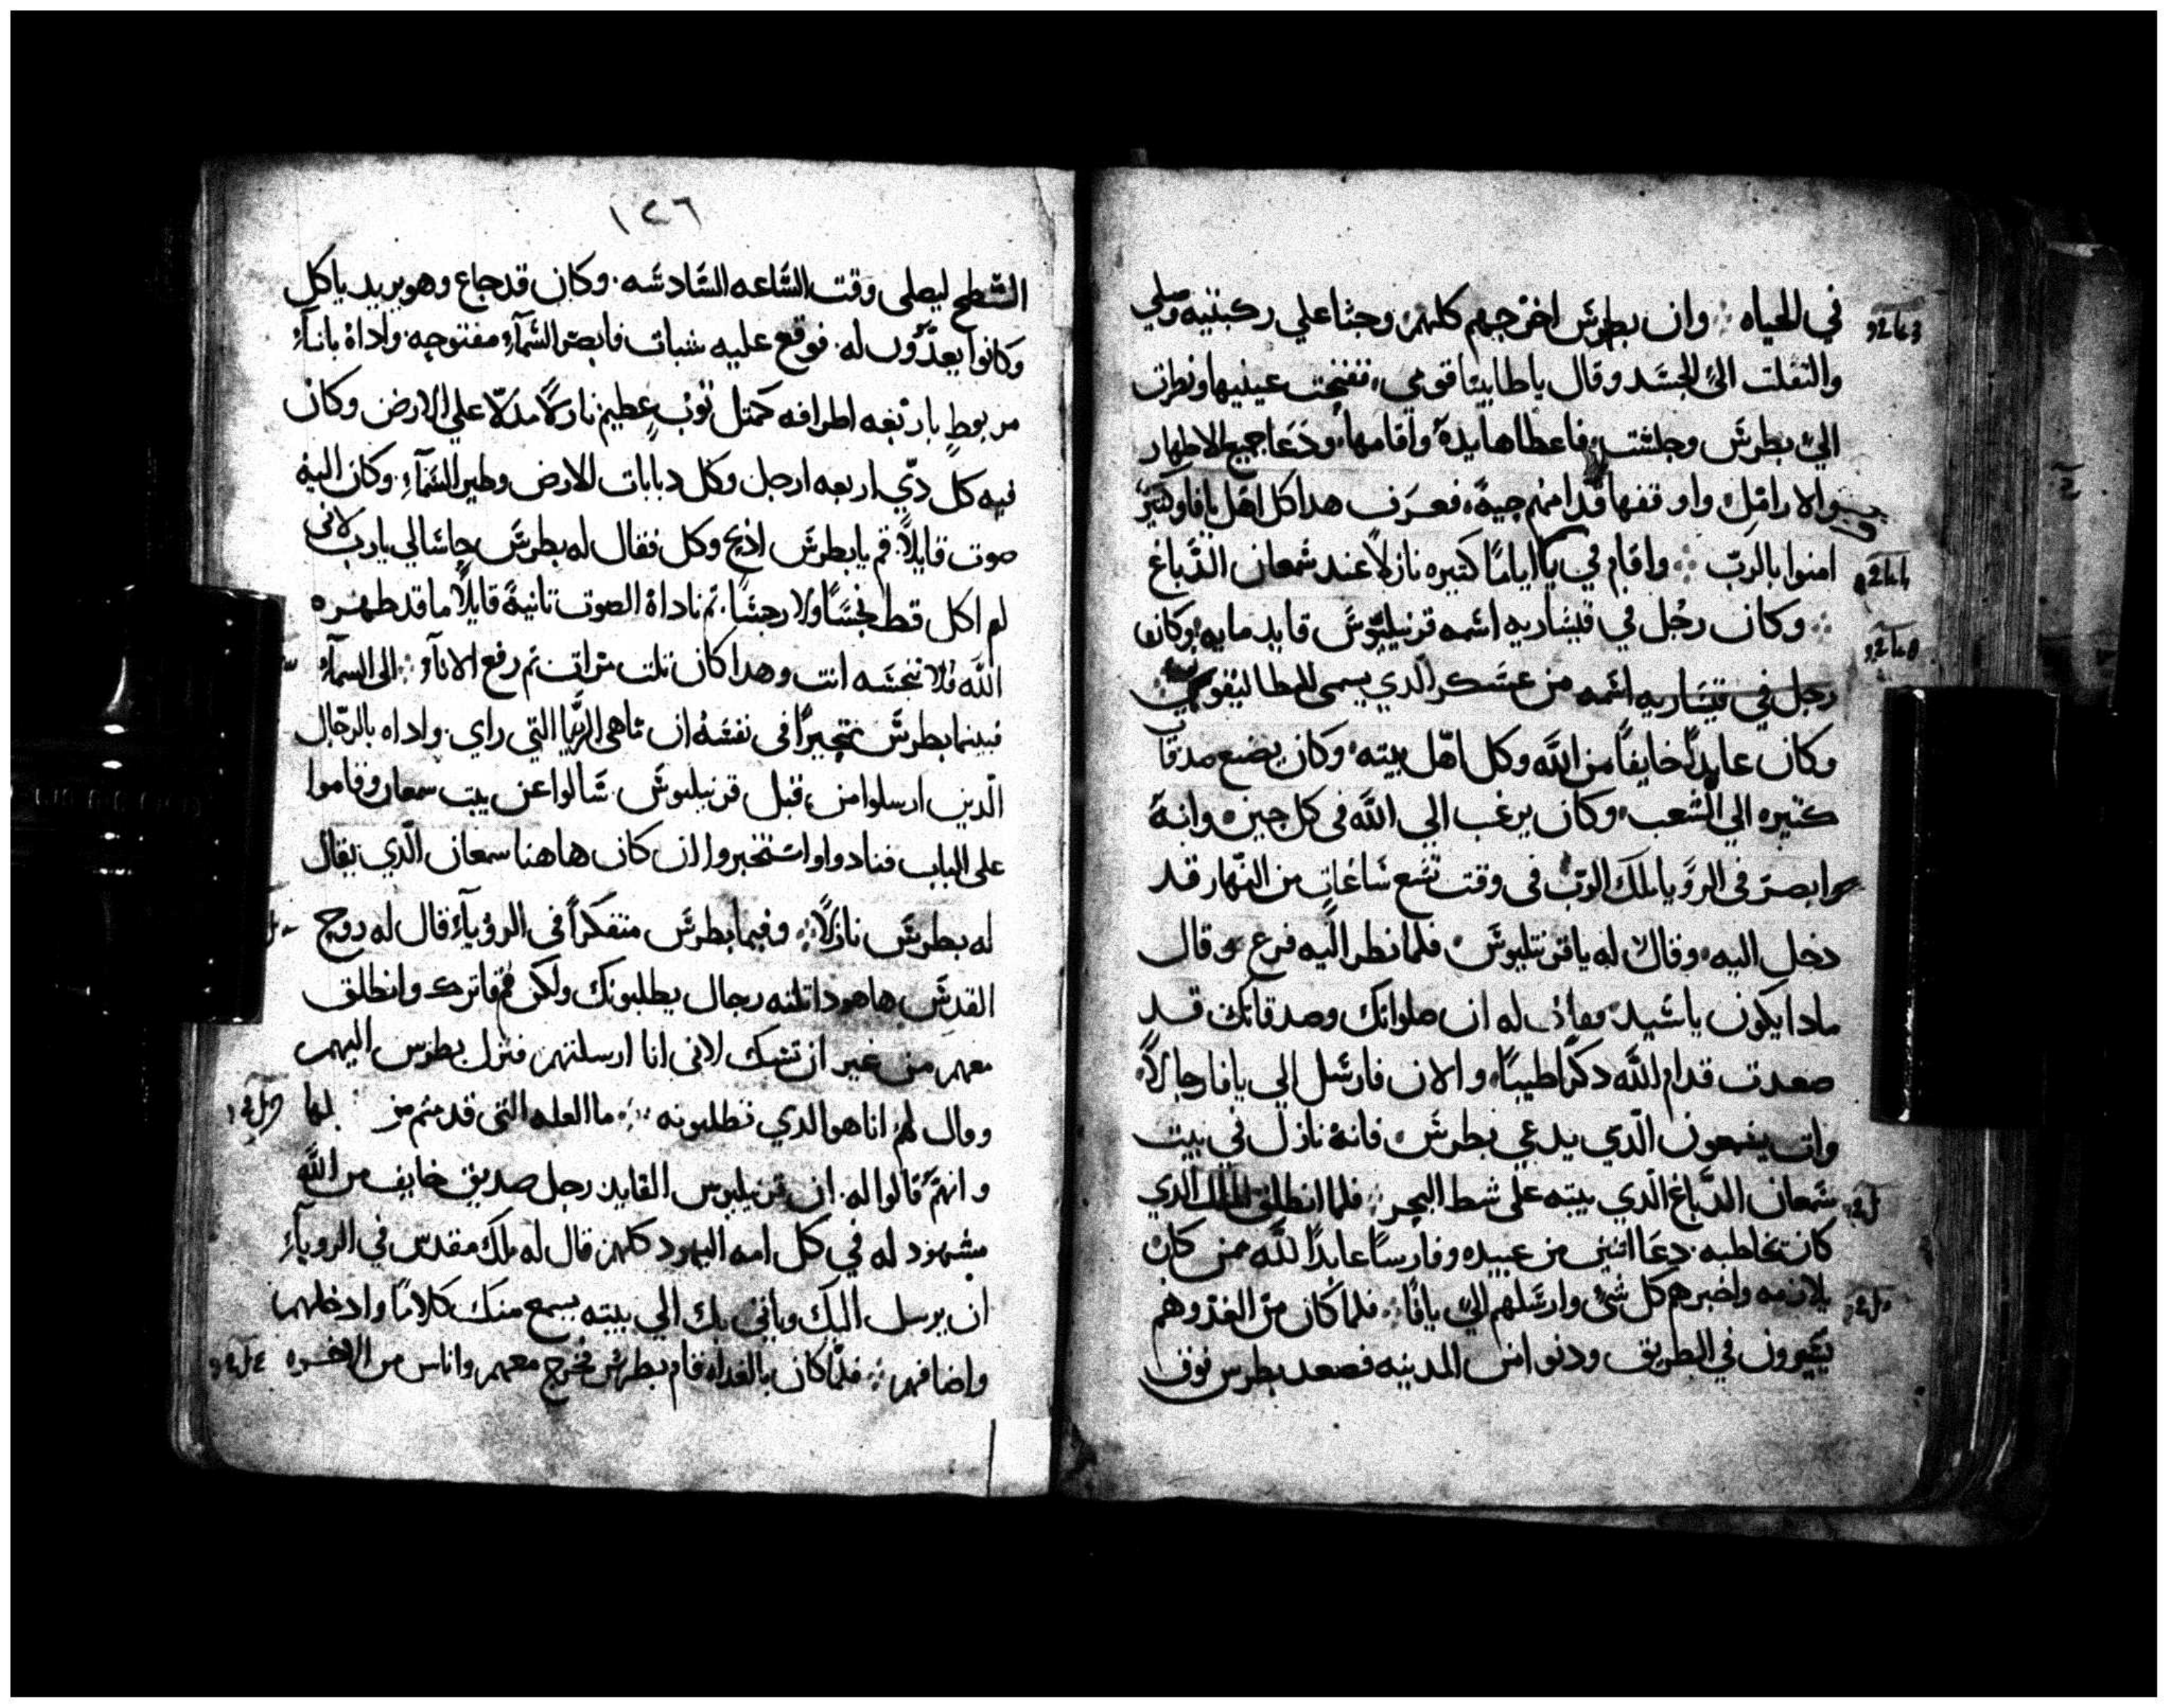 في الحياه ⁘ وان بطرش اخرجهم كلهم وجثا علي ركبتيه وصلي
والتفلت الي الجسد وقال ياطابيثا قومي، ففتحت عينيها ونظرت
الي بطرش وجلست، فاعطاها يده واقامها، ودعا جميع الاطهار
والارامل واوقفها قدامهم حيه، فعرف هدا كل اهل يافا وكثير
امنوا بالرب ⁘ واقام في يافا اياما كتيره نازلا عند شمعان الدباغ
⁘ وكان رجل في قيساريه اسمه قرنيليوش قايد مايه وكان
رجل في قيساريه اسمه من عسكر الدي يسمي ايطاليقون
وكان عابدا خايفا من الله وكل اهل بيته وكان يصنع صدقات
كتيره الي الشعب، وكان يرغب الي الله في كل حين وانه
ابصر في الرويا ملك الرب في وقت تسع ساعات من النهار قد
دخل اليه، وقال له ياقرنيليوش فلما نظر اليه فزع وقال
مادا يكون ياسيد، فقال له ان صلواتك وصدقاتك قد
صعدت قدام الله دكرا طيبا، والان فارسل الي يافا رجالا
وات بشمعون الدي يدعي بطرش فانه نازل في بيت
شمعان الدباغ الدي بيته على شط البحر ⁘ فلما انطلق الملك الدي
كان تخاطبه، دعا اتنين من عبيده وفارسا عابدا لله ممن كان
يلازمه واخبرهم كل شي وارسلهم الي يافا ⁘ فلما كان من الغد وهم
يسيرون في الطريق ودنوا من المدينه فصعد بطرس فوق
١٢٦
السطح ليصلى وقت الساعه السادسه، وكان قد جاع وهو يريد ياكل
وكانوا يعدون له، فوقع عليه سبات فابصر السماء مفتوحه، واداة باناء
مربوط باربعه اطرافه كمتل توب عظيم نازلا مدلا علي الارض وكان
فيه كل دي اربعه ارجل وكل دبابات الارض وطير السماء، وكان اليه
صوت قايلا، قم يابطرش ادبح وكل فقال له بطرش حاشا لي يارب لاني
لم اكل قط نجسا ولا رجسا، تم ناداة الصوت تانية قايلا ما قد طهره
الله فلا تنجسه انت وهدا كان تلت مرات تم رفع الاناء ⁘ الى السماء
فبينما بطرش متحيرا في نفسه ان ماهي الرويا التي راي، واداه بالرجال
الدين ارسلوا من قبل قرنيليوش، سالوا عن بيت سمعان وقاموا
على الباب فنادوا واستخبروا ان كان هاهنا سمعان الدي يقال
له بطرش نازلا ⁘ وفيما بطرش متفكرا في الروياء قال له روح
القدس هاهودا تلته رجال يطلبونك ولكن قم فاترك وانطلق
معهم من غير ان تشك لانى انا ارسلتهم فنزل بطرس اليهم
وقال لهم انا هو الدي تطلبونه ⁘ ما العله التى قدمتم من لها
وانهم قالوا له، ان قرنيليوس القايد رجل صديق خايف من الله
مشهود له في كل امه اليهود كلهم قال له ملك مقدس في الروياء
ان يرسل اليك وياتي بك الي بيته يسمع منك كلاما وادخلهم
واضافهم ⁘ فلما كان بالغداه قام بطرش فخرج معهم واناس من الاخوه